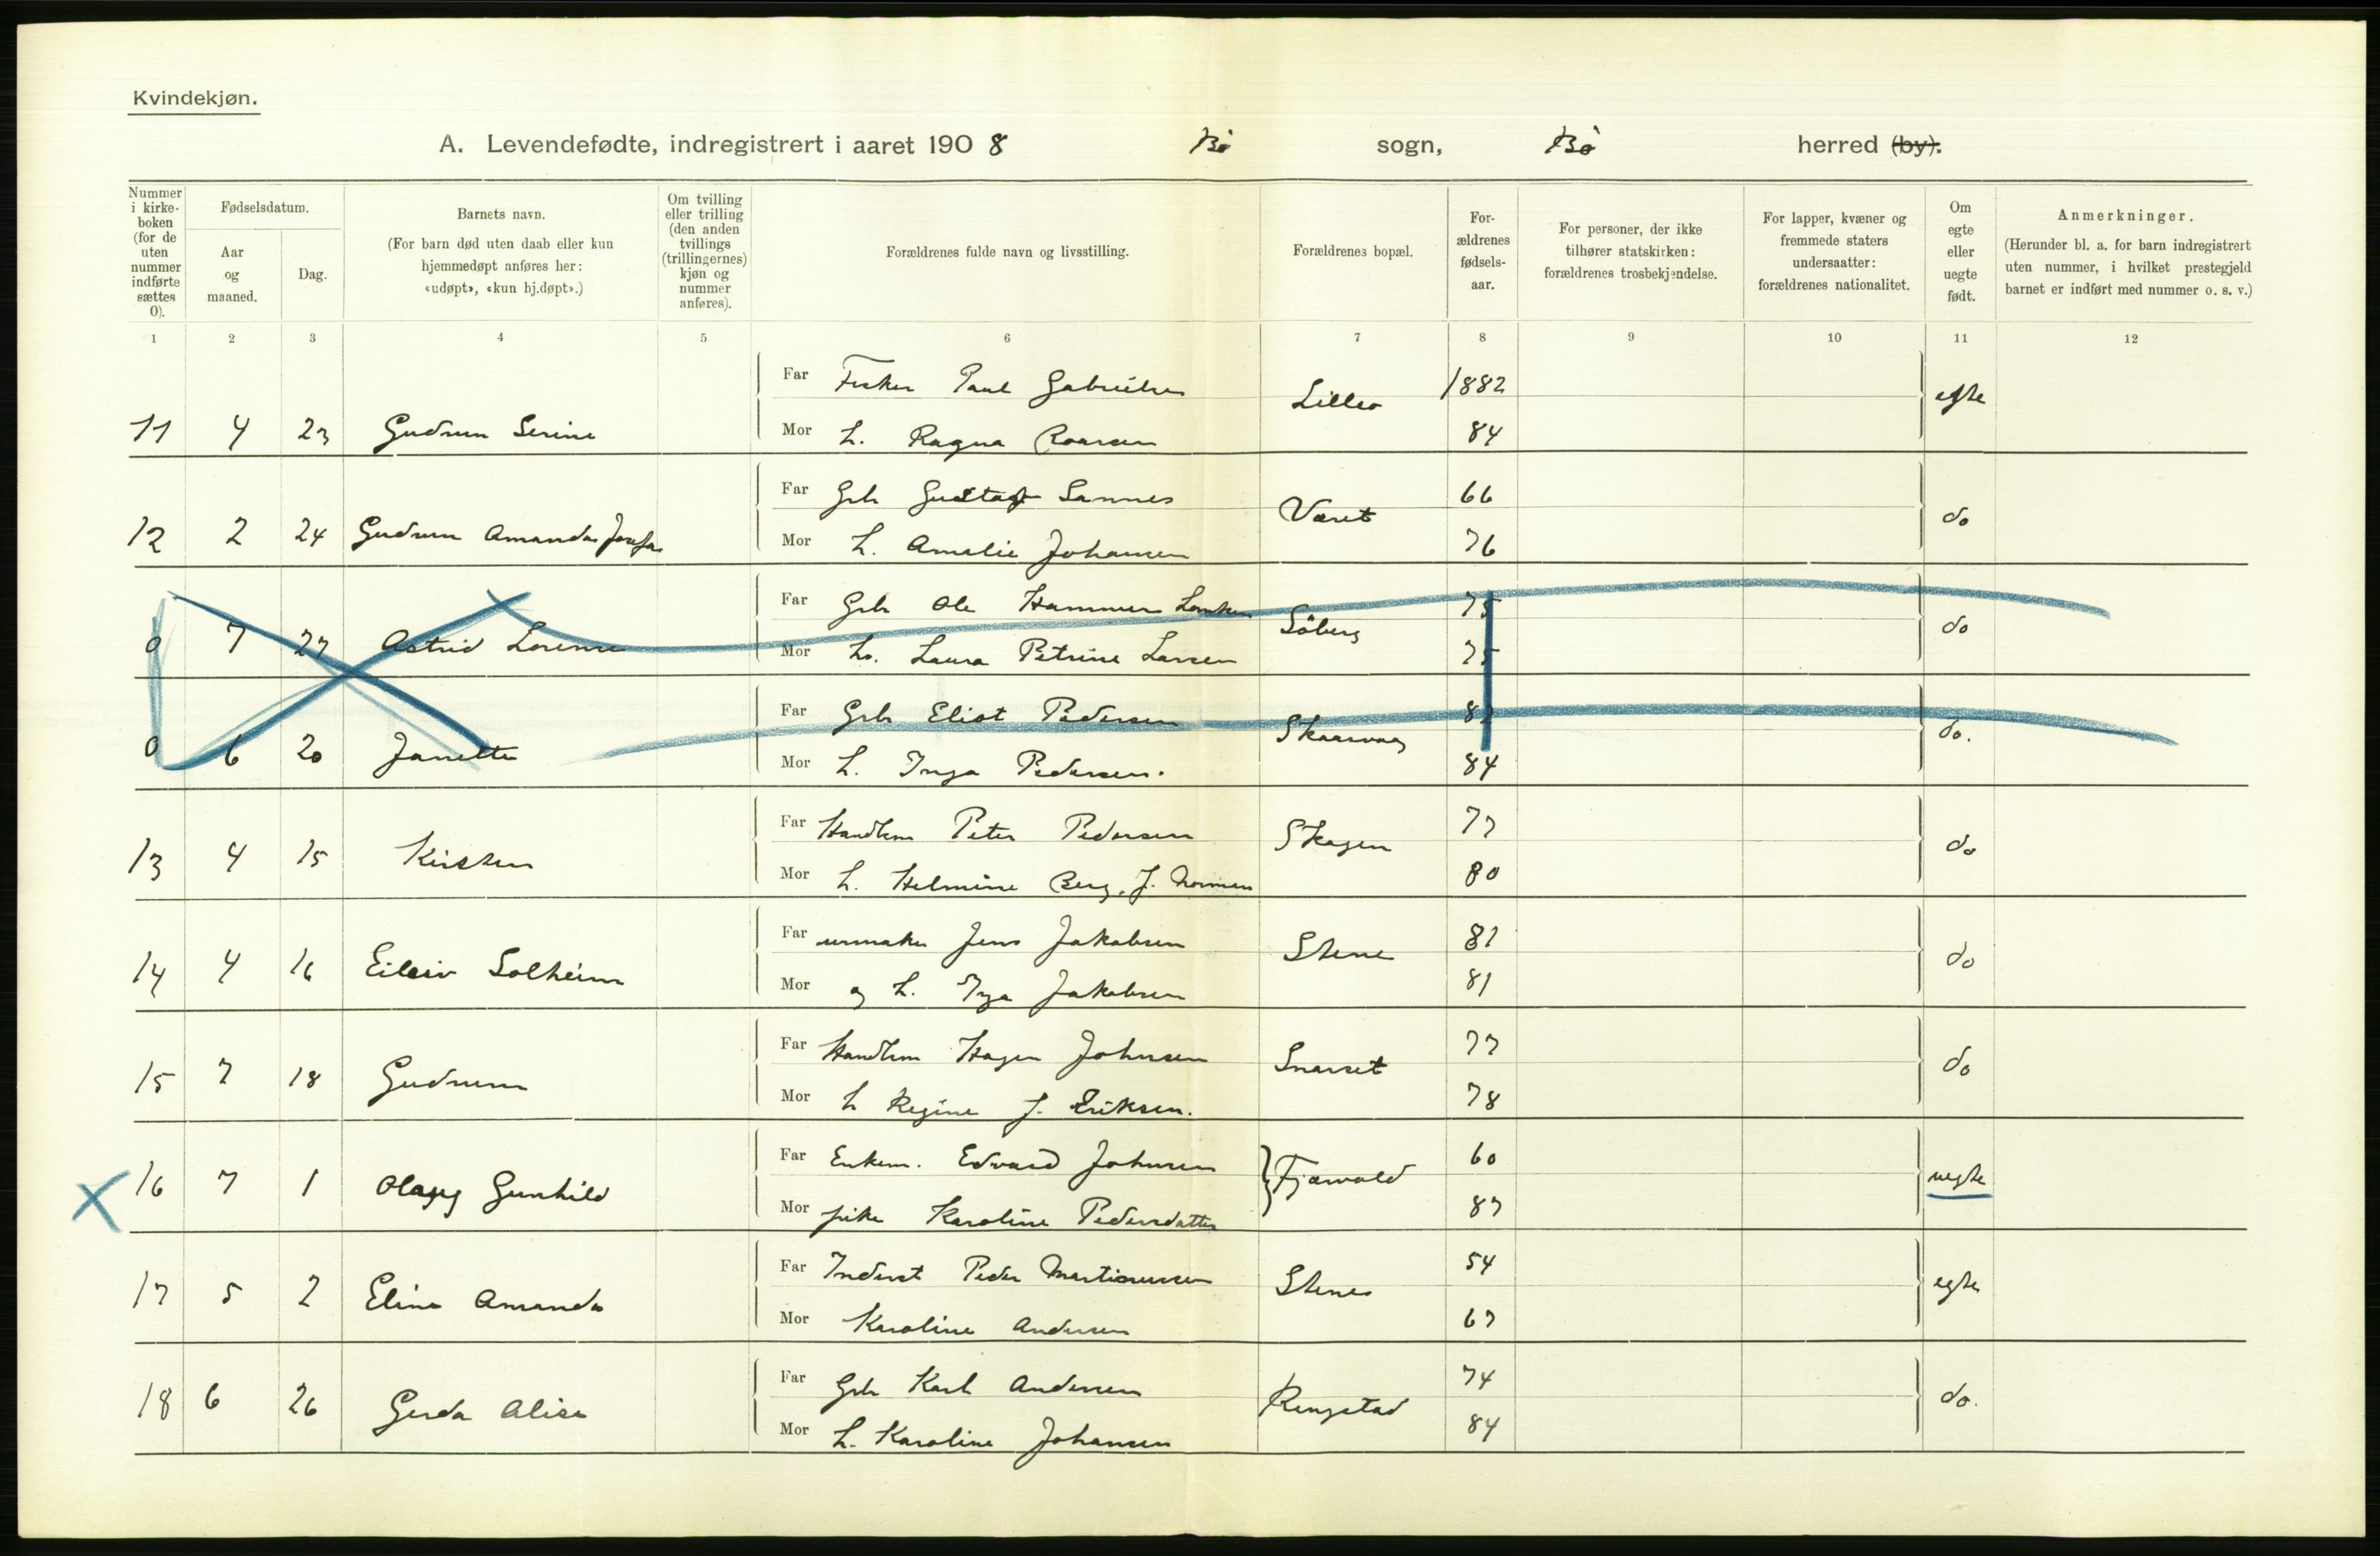 Kvindekjøn.
A. Levendefødte, indregistrert i aaret 1908 Bø sogn, Bø herred (by).
Nummer i kirke-boken (for de uten nummer indførte sættes 0).
Fødselsdatum.
Aar og maaned.
Dag.
Barnets navn.
(For barn død uten daab eller kun hjemmedøpt anføres her: «udøpt», «kun hj.døpt».)
Om tvilling eller trilling (den anden tvillings (trillingernes) kjøn og nummer anføres).
Forældrenes fulde navn og livsstilling.
Forældrenes bopæl.
For-ældrenes fødsels-aar.
For personer, der ikke tilhører statskirken: forældrenes trosbekjendelse.
For lapper, kvæner og fremmede staters undersaatter: forældrenes nationalitet.
Om egte eller uegte født.
Anmerkninger.
(Herunder bl. a. for barn indregistrert uten nummer, i hvilket prestegjeld barnet er indført med nummer o. s. v.)
1 2 3 4 5 6 7 8 9 10 11 12
Far Fisker Paul Gabrielsen 1882
11 4 23 Gudrun Serine Lilleø egte
Mor h. Ragna Roarsen 84
Far Grb Gustaf Sannes 66
12 2 24 Gudrun Amanda Josefa Været do
Mor h. Amalie Johansen 76
Far Grb Ole Hammer 75
0 7 27 Astrid Lorense Söberg do
Mor h. Laura Petrine Larsen 75
Far Grb Eliot Pedersen 82
0 6 20 Janette Skaarvaag do.
Mor h. Inga Pedersen. 84
Far Handlem Peter Pedersen 77
13 4 15 Kirsten Skagen do
Mor h. Helmine Berg, f. 80
Far urmaker Jens Jakobsen 81
14 4 16 Eileiv Solheim Stene do
Mor og h. Inga Jakobsen 81
Far Handlem Hagen Johnsen 77
15 7 18 Gudrun Snarset do
Mor h Regine f. Eriksen. 78
Far Enkem. Edvard Johnsen 60
16 7 1 Olayg Gunhild Fjærvold uegte
Mor pike Karoline Pedersdatter 87
Far Inderst Peder Martinussen 54
17 5 2 Eline Amanda Stenes egte
Mor Karoline Andersen 67
Far Grb Karl Andersen 74
18 6 26 Gerda Alise Ringstad do.
Mor h. Karoline Johansen 84